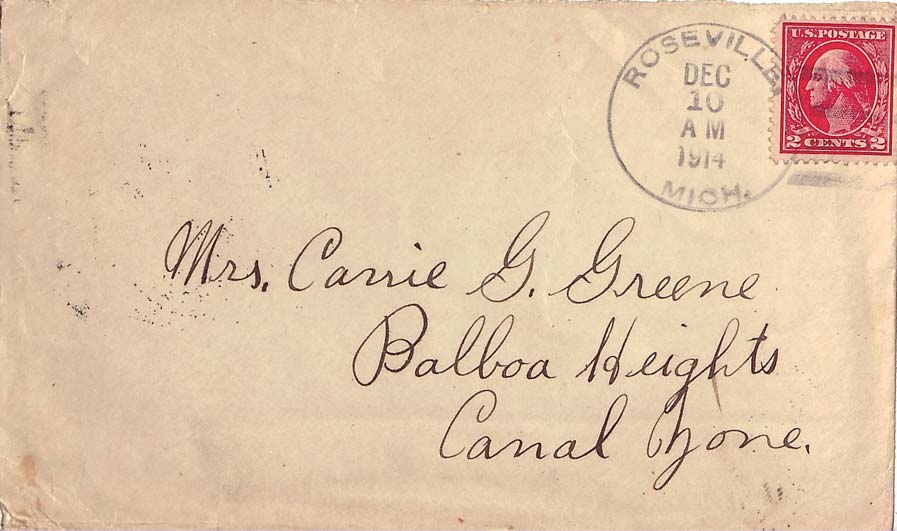 ROSEVILLE
DEC
10
AM
1914
MICH.
U.S. POSTAGE
2 CENTS 2
Mrs. Carrie G. Greene
Balboa Heights
Canal Zone.